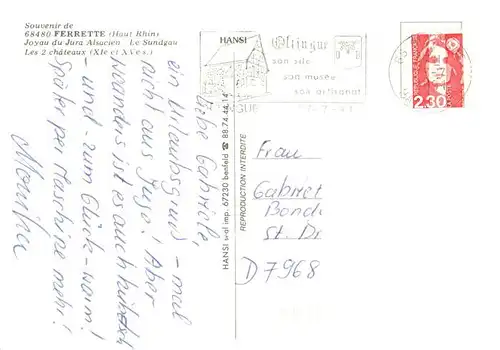 Souvenir de
68480 FERRETTE (Haut Rhin)
Joyau du Jura Alsacien Le Sundgau
Les 2 châteaux (XIe et XVe s.)
Liebe Gabriele,
ein Urlaubsgruß - mal
nicht aus Jugo! Aber
woanders ist es auch hübsch
- und - zum Glück - warm!
Später per Maschine mehr!
Monika
HANSI sral imp. 67230 benfeld ☎ 88.74.44.14
REPRODUCTION INTERDITE
HANSI
Oltingue
son site
son musée
son artisanat
REPUBLIQUE FRANÇAISE
2,30
Frau
Gabriel
Bonde
St. Dr
D 7968